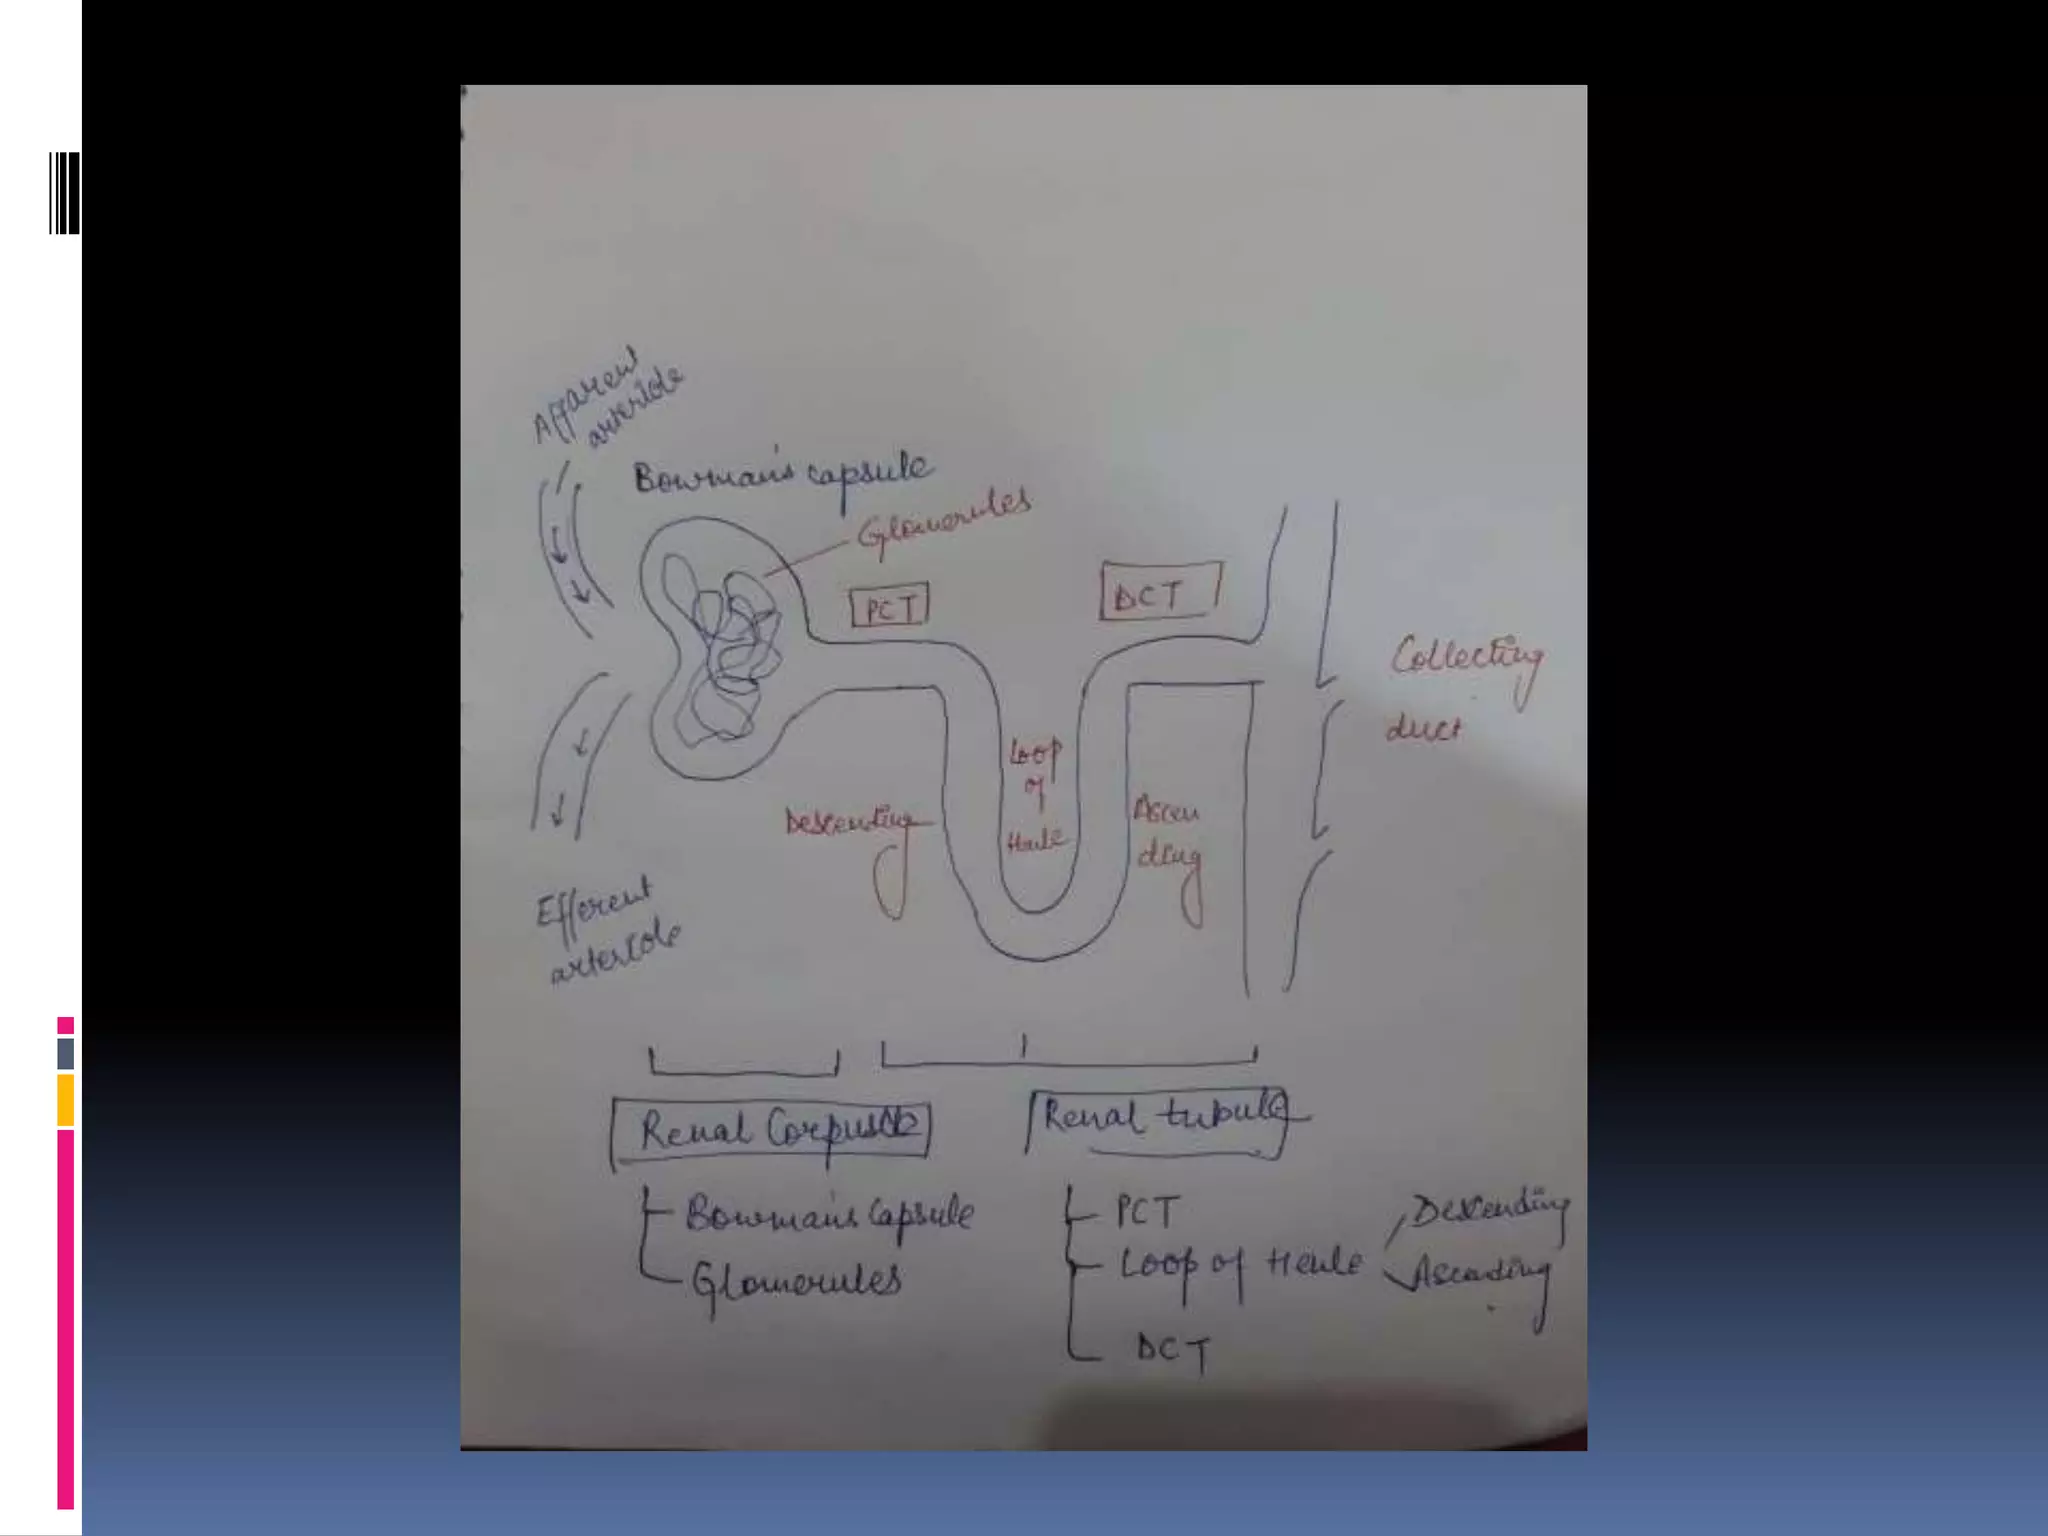 Affarent
arteriole
Bowman's capsule
Glomerules
PCT
DCT
Collecting
duct
Loop
of
Henle
Descending
Ascen
ding
Efferent
arteriole
Renal Corpuscle
Renal tubule
Bowman's Capsule
Glomerules
PCT
Loop of Henle
Descending
Ascending
DCT